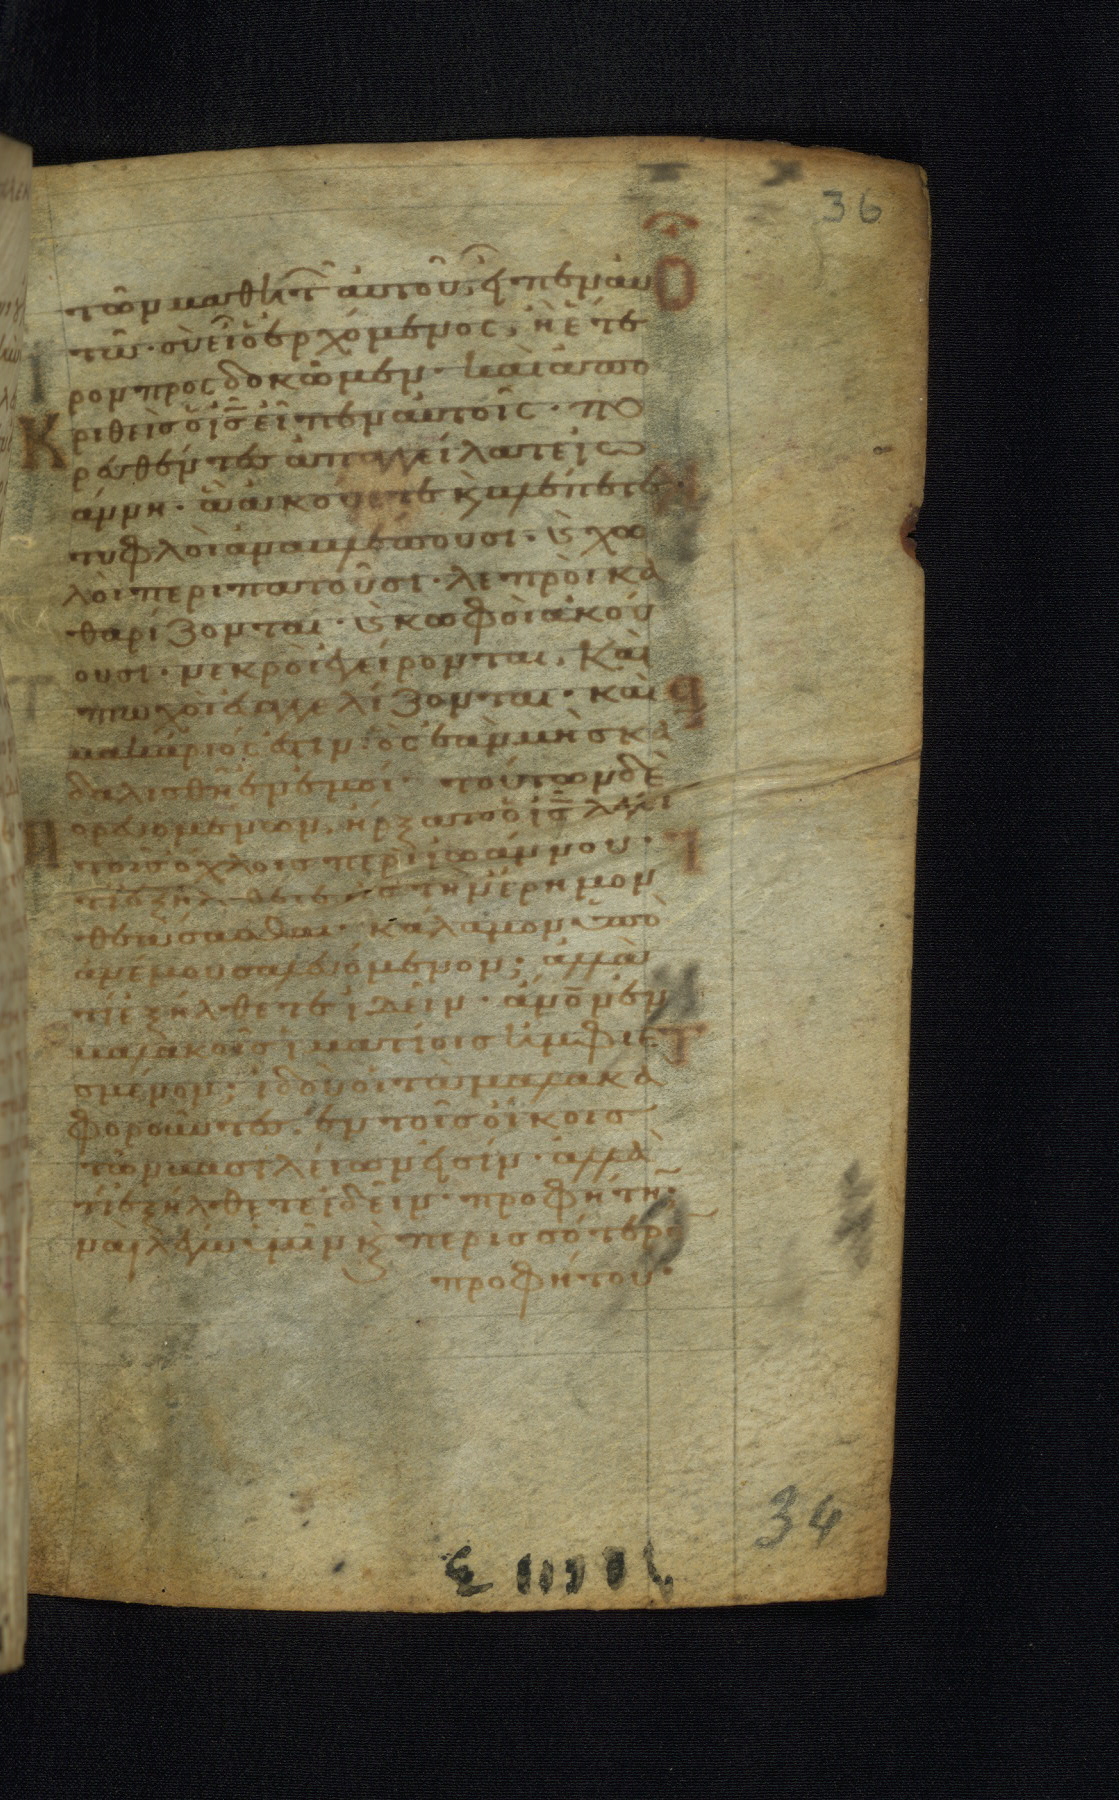 36
τῶν μαθητ αὐτοῦ, εἶπεν αὐ
τῶ· σὺ εἶ ὁ ἐρχόμενος, ἢ ἕτε
ρον προσδοκῶμεν· καὶ ἀπο
κριθεὶς ὁ ις εἶπεν αὐτοῖς· πο
ρευθέντες ἀπαγγείλατε ἰω
άννη· ἃ ἀκούετε κ βλέπετε·
τυφλοὶ ἀναβλέπουσι· κ χω
λοὶ περιπατοῦσι· λεπροὶ κα
θαρίζονται· κ κωφοὶ ἀκού
ουσι· νεκροὶ ἐγείρονται, καὶ
πτωχοὶ εὐαγγελίζονται· καὶ
μακάριός ἐστιν· ὃς ἐὰν μὴ σκα
δαλισθῆ ἐν ἐμοί· τούτων δὲ
πορευομένων, ἤρξατο ὁ ις λέγει
τοῖς ὄχλοις περὶ ἰωάννου·
τί ἐξήλθετε εἰς τὴν ἔρημον
θεάσασθαι· κάλαμον ὑπὸ
ἀνέμου σαλευόμενον; ἀλλὰ
τί ἐξήλθετε ἰδεῖν· ἄνον ἐν
μαλακοῖς ἱματίοις ἠμφιε
σμένον; ἰδοὺ οἱ τὰ μαλακὰ
φοροῦντες· ἐν τοῖς οἴκοις
τῶν βασιλείων εἰσίν· ἀλλὰ
τί ἐξήλθετε ἰδεῖν· προφήτην·
ναὶ λέγω ὑμῖν κ περισσότερο
προφήτου·
34